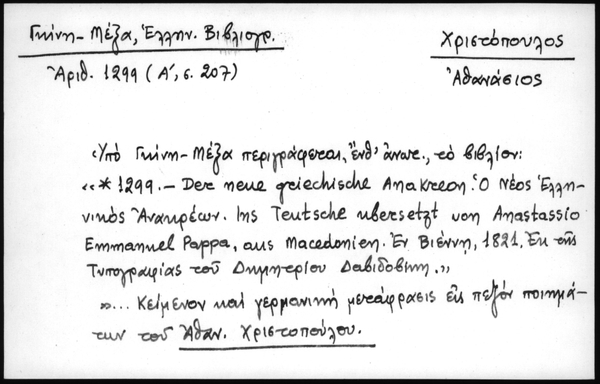 Γκίνη-Μέξα, Ἑλλην. Βιβλιογρ.
Ἀριθ. 1299 (Α΄, σ. 207)
Χριστόπουλος
Ἀθανάσιος
Ὑπὸ Γκίνη-Μέξα περιγράφεται, ἔνθ' ἀνωτ., τὸ βιβλίον:
«* 1299.— Der neue griechische Anakreon. Ὁ Νέος Ἑλλη-
νικὸς Ἀνακρέων. Ins Teutsche ubersetzt von Anastassio
Emmanuel Pappa, aus Macedonien. Ἐν Βιέννῃ, 1821, Ἐκ τῆς
Τυπογραφίας τοῦ Δημητρίου Δαβιδοβίκη.»
»... Κείμενον καὶ γερμανικὴ μετάφρασις εἰς πεζὸν ποιημά-
των τοῦ Ἀθαν. Χριστοπούλου.